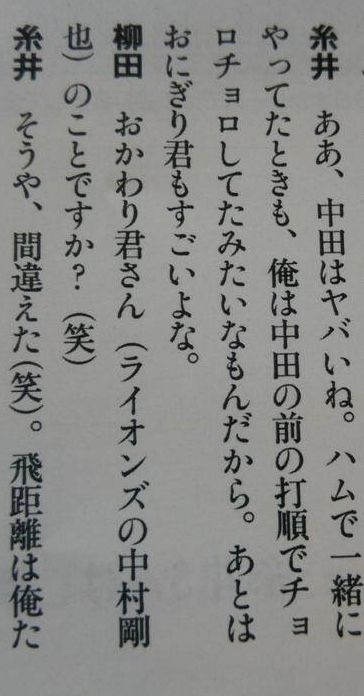 糸井　ああ、中田はヤバいね。ハムで一緒に
やってたときも、俺は中田の前の打順でチョ
ロチョロしてたみたいなもんだから。あとは
おにぎり君もすごいよな。
柳田　おかわり君さん（ライオンズの中村剛
也）のことですか？（笑）
糸井　そうや、間違えた（笑）。飛距離は俺た